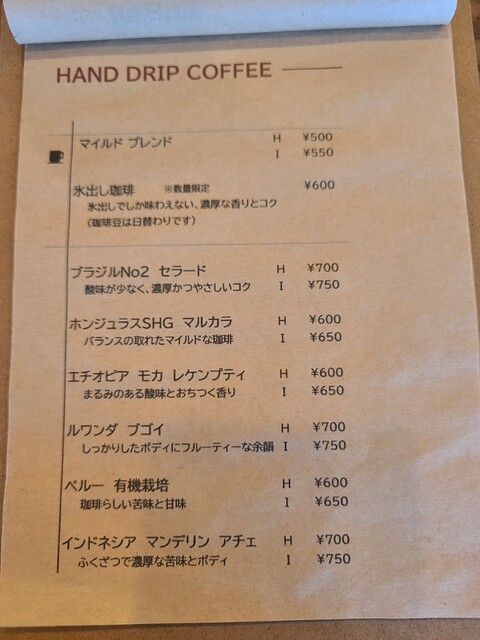 HAND DRIP COFFEE
マイルド ブレンド H ¥500
I ¥550
氷出し珈琲 ※数量限定 ¥600
氷出しでしか味わえない、濃厚な香りとコク
(珈琲豆は日替わりです)
ブラジルNo2 セラード H ¥700
酸味が少なく、濃厚かつやさしいコク I ¥750
ホンジュラスSHG マルカラ H ¥600
バランスの取れたマイルドな珈琲 I ¥650
エチオピア モカ レケンプティ H ¥600
まるみのある酸味とおちつく香り I ¥650
ルワンダ ブゴイ H ¥700
しっかりしたボディにフルーティーな余韻 I ¥750
ペルー 有機栽培 H ¥600
珈琲らしい苦味と甘味 I ¥650
インドネシア マンデリン アチェ H ¥700
ふくざつで濃厚な苦味とボディ I ¥750